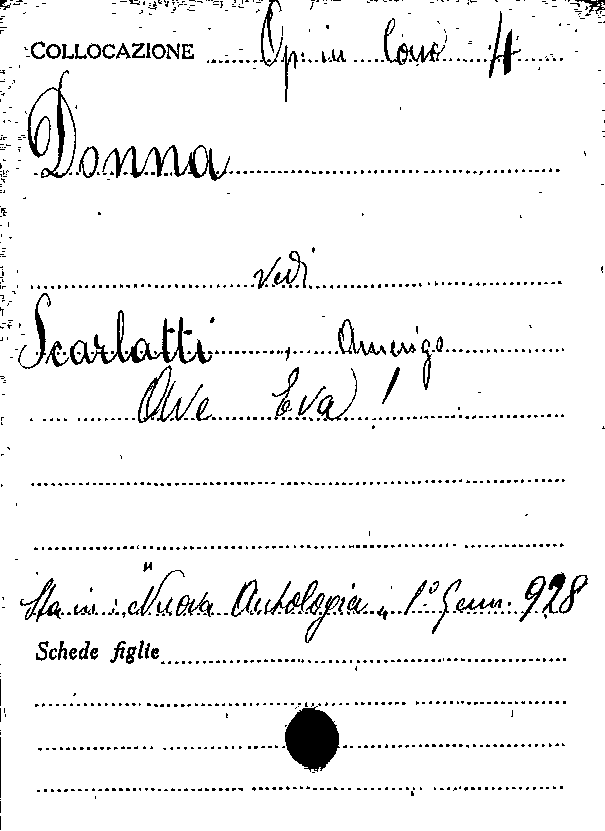 COLLOCAZIONE Op. in Cons 4
Donna
vedi
Scarlatti, Amerigo
Ave Eva!
Sta in: "Nuova Antologia" 1° Genn. 928
Schede figlie